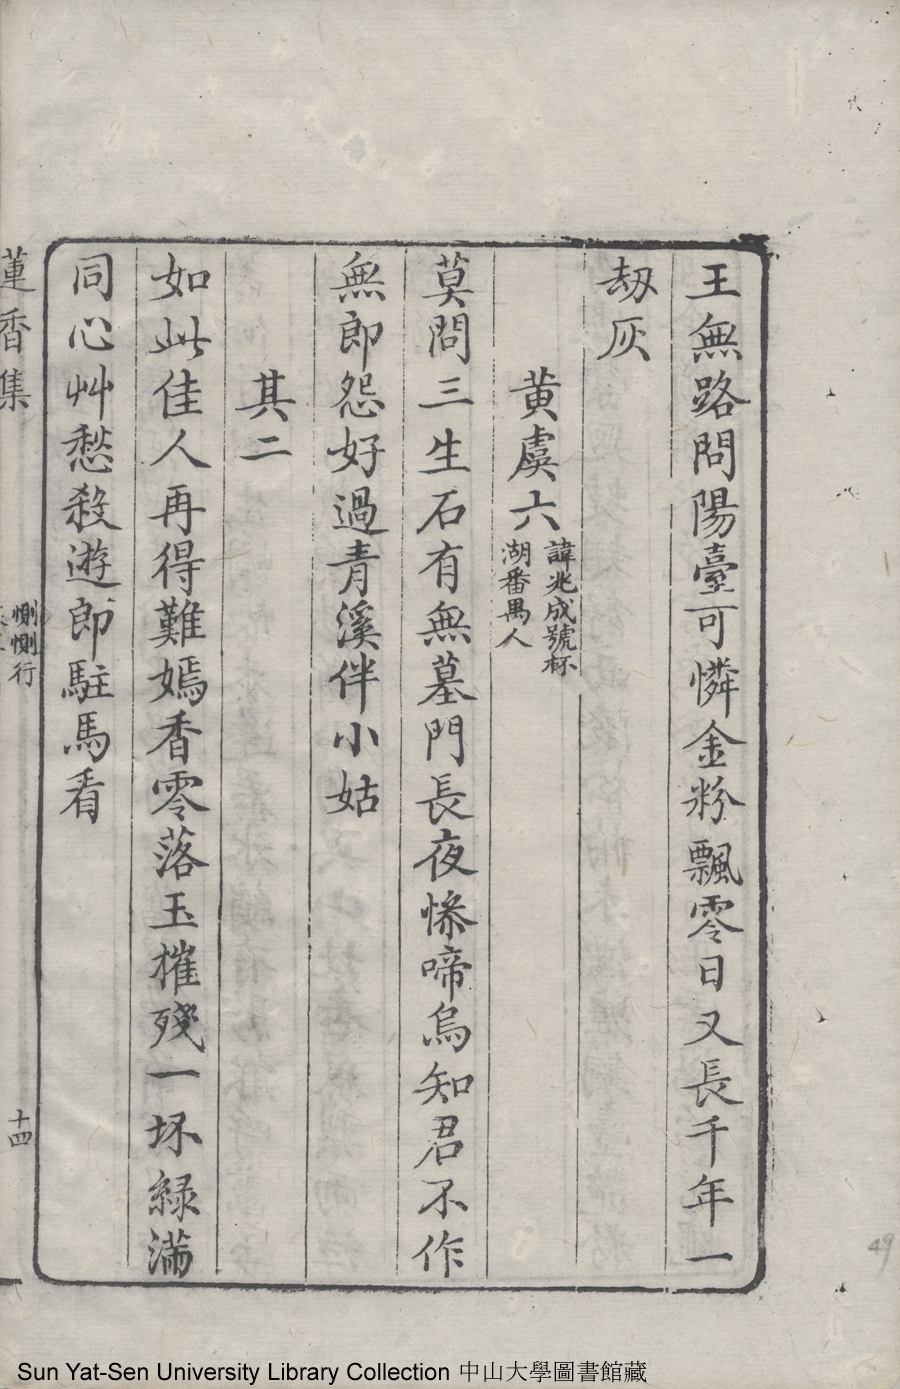 王無路問陽臺可憐金粉飄零日又長千年一
劫灰
黄虞六 諱兆成號杯湖番禺人
莫問三生石有無墓門長夜慘啼烏知君不作
無郎怨好過青溪伴小姑
其二
如此佳人再得難嫣香零落玉摧殘一抔緑滿
同心艸愁殺遊郎駐馬看
蓮香集
惻惻行
十四
49
Sun Yat-Sen University Library Collection 中山大學圖書館藏